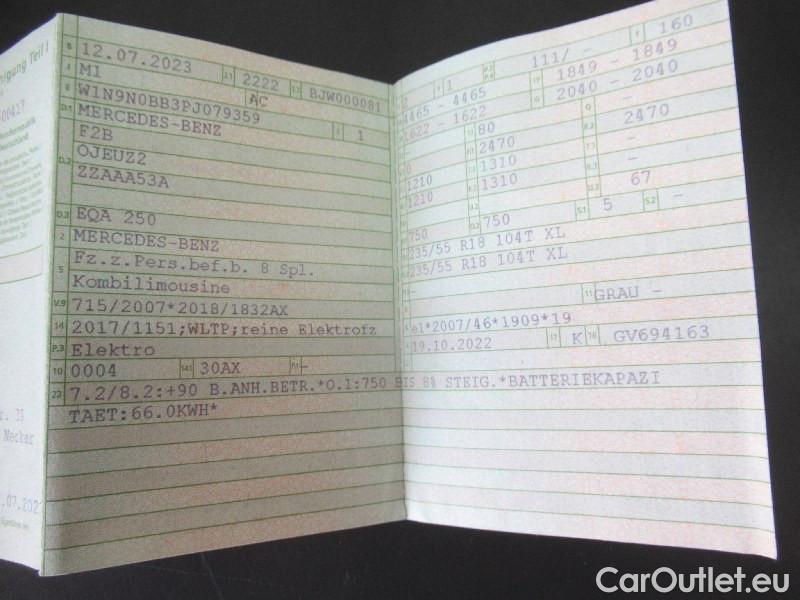 igung Teil I
00417
B 12.07.2023 2.1 2222 2.2 BJW000081
J M1 AC
E W1N9N0BB3PJ079359 3 1
D.1 MERCEDES-BENZ
D.2 F2B
OJEUZ2
ZZAAA53A
D.3 EQA 250
2 MERCEDES-BENZ
5 Fz.z.Pers.bef.b. 8 Spl.
Kombilimousine
V.9 715/2007*2018/1832AX
14 2017/1151;WLTP;reine Elektrofz
P.3 Elektro
10 0004 14.1 30AX P.1 -
22 7.2/8.2:+90 B.ANH.BETR.*O.1:750 BIS 8% STEIG.*BATTERIEKAPAZI
TAET:66.0KWH*
1 111/ - T 160
4465 - 4465 1849 - 1849
1622 - 1622 2040 - 2040
80 Q -
2470 2470
1210 1310 -
1210 1310 -
U.3 67
750 750 S.1 5 S.2 -
235/55 R18 104T XL
235/55 R18 104T XL
- 11 GRAU -
e1*2007/46*1909*19
19.10.2022 17 K 16 GV694163
r. 39
Neckar
.07.202
CarOutlet.eu